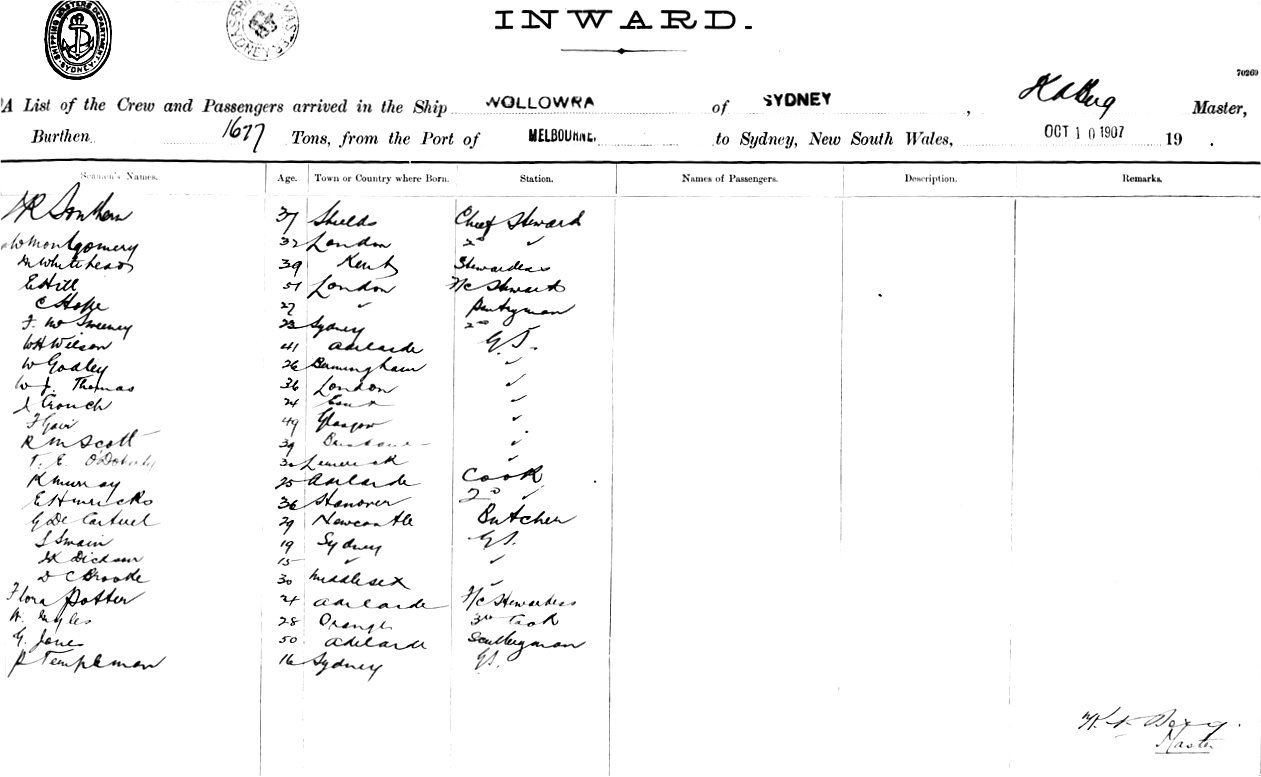 SHIPPING MASTERS DEPARTMENT
SYDNEY
INWARD.
70269
A List of the Crew and Passengers arrived in the Ship WOLLOWRA of SYDNEY, Master,
Burthen 1677 Tons, from the Port of MELBOURNE. to Sydney, New South Wales, OCT 10 1907 19 .
Seamen's Names. Age. Town or Country where Born. Station. Names of Passengers. Description. Remarks.
37 Shields Chief Steward
W Montgomery 32 London 2nd ✓
M Whitehead 39 Kent Stewardess
E Hill 51 London F/c Steward
C Hope 27 ✓ Pantryman
F. McSweeney 23 Sydney 2nd
WH Wilson 41 Adelaide G.S.
W Godley 26 Birmingham ✓
W J. Thomas 36 London ✓
J Crouch 24 ✓
49 Glasgow ✓
R M Scott 39 Brisbane ✓
T. E. O'Doherty Limerick ✓
R Murray 25 Adelaide Cook
E Hinricks 36 Hanover 2nd ✓
G De 29 Newcastle Butcher
S Swain 19 Sydney G.S.
Dickson 15 ✓ ✓
D C Brooke 30 Middlesex ✓
Flora Potter 21 Adelaide F/c Stewardess
28 Orange 3rd Cook
G. Jones 50 Adelaide Sculleryman
P Templeman 16 Sydney G.S.
Master